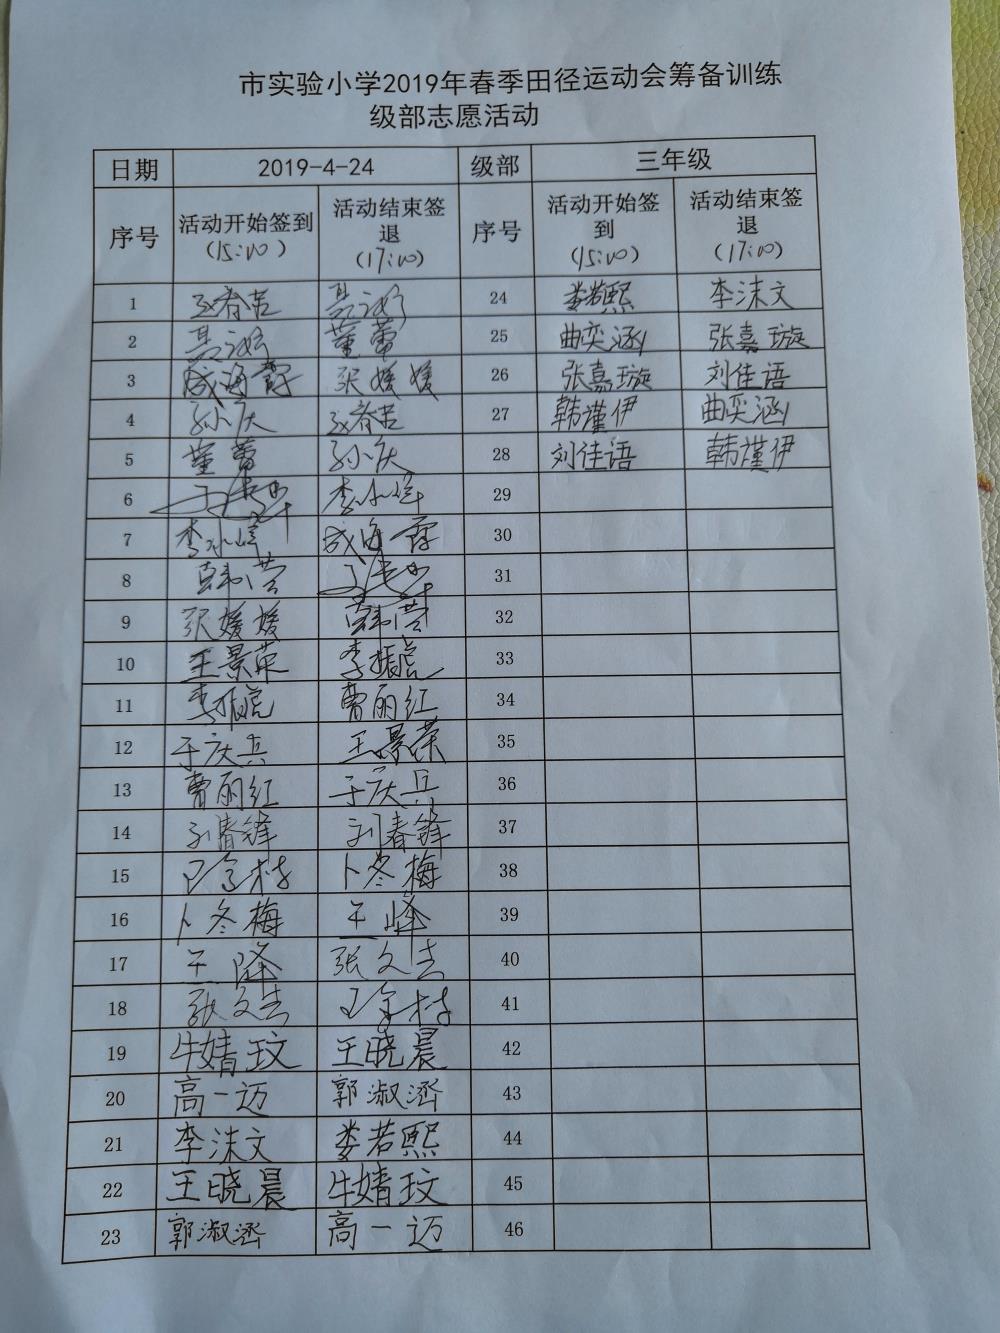 市实验小学2019年春季田径运动会筹备训练
级部志愿活动
日期 2019-4-24 级部 三年级
序号 活动开始签到 (15:00) 活动结束签退 (17:00) 序号 活动开始签到 (15:00) 活动结束签退 (17:00)
1 24 娄若熙 李沫文
2 董蕾 25 曲奕涵 张嘉璇
3 成海霞 张媛媛 26 张嘉璇 刘佳语
4 孙庆 27 韩谨伊 曲奕涵
5 董蕾 孙庆 28 刘佳语 韩谨伊
6 29
7 成海霞 30
8 韩营 31
9 张媛媛 韩营 32
10 王景荣 李振亮 33
11 李振亮 曹丽红 34
12 于庆兵 王景荣 35
13 曹丽红 于庆兵 36
14 刘春锋 刘春锋 37
15 卜冬梅 38
16 卜冬梅 王峰 39
17 王峰 张文杰 40
18 张文杰 41
19 牛婧玟 王晓晨 42
20 高一迈 郭淑濟 43
21 李沫文 娄若熙 44
22 王晓晨 牛婧玟 45
23 郭淑濟 高一迈 46